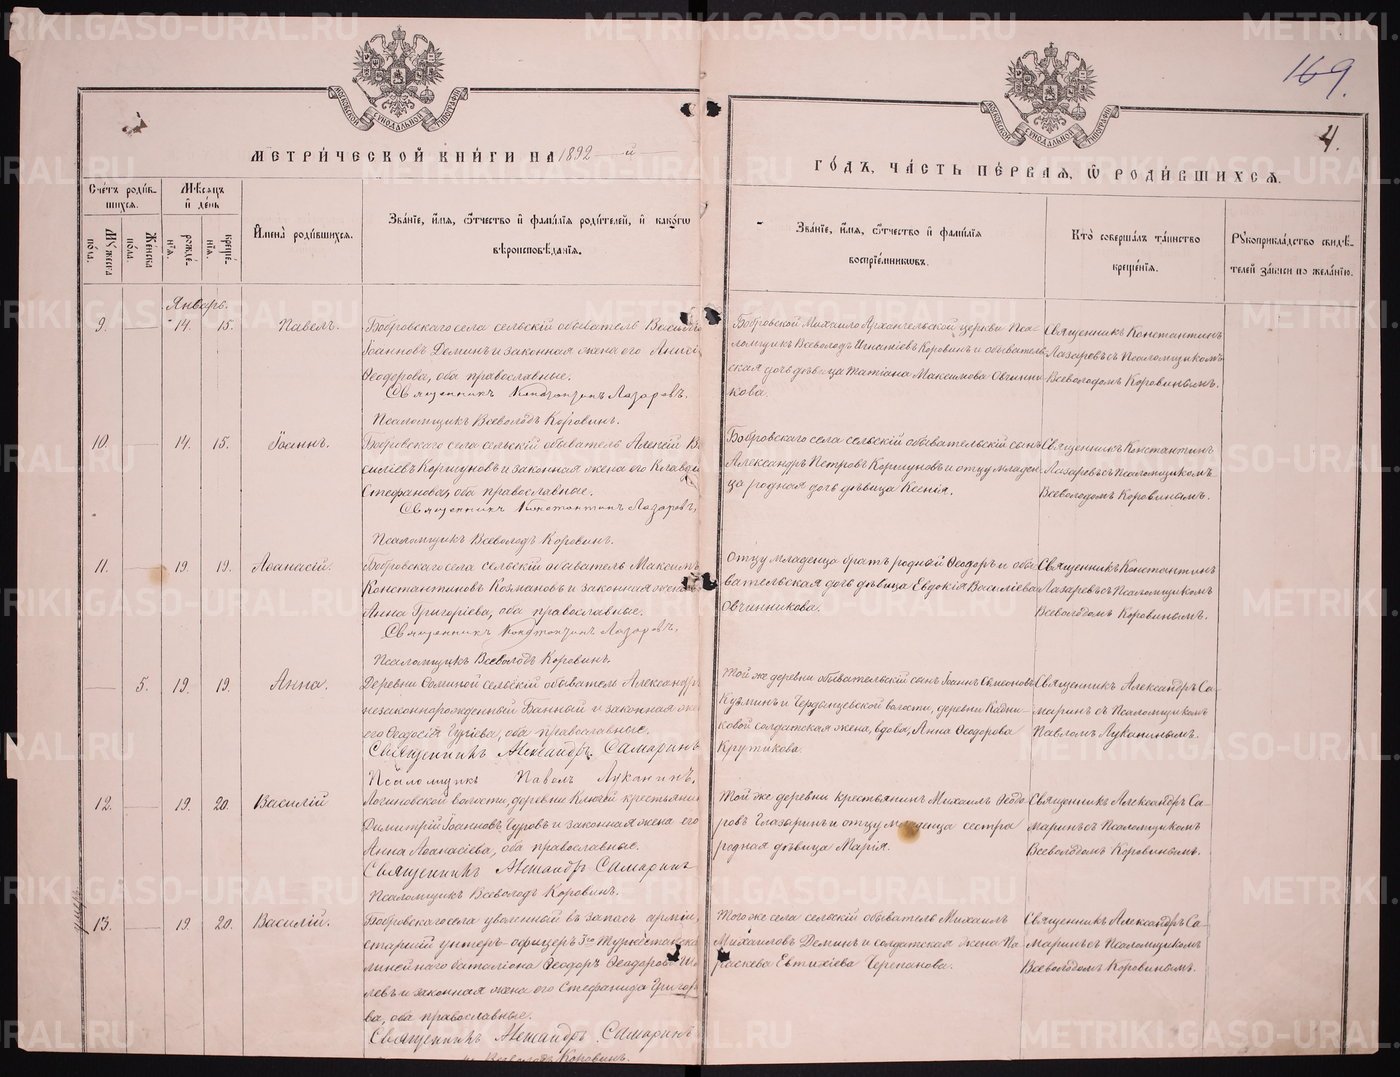 169.
4.
МОСКОВСКОЙ СѴНОДАЛЬНОЙ ТИПОГРАФІИ
МОСКОВСКОЙ СѴНОДАЛЬНОЙ ТИПОГРАФІИ
МЕТРИ́ЧЕСКОЙ КНИ́ГИ НА 1892 й
ГО́ДЪ, ЧА́СТЬ ПЕ́РВАЯ, Ѽ РОДИ́ВШИХСЯ.
Сче́тъ роди́в-
шихся.
Мꙋжеска по́ла.
Же́нска по́ла.
Мѣ́сяцъ
и де́нь
рожде́-
нїя.
креще́-
нїя.
И҆мена̀ роди́вшихся.
Зва́нїе, и҆́мя, ѻ҆́тчество и҆ фами́лїя роди́телей, и҆ како́гѡ
вѣроисповѣ́данїя.
Зва́нїе, и҆́мя, ѻ҆́тчество и҆ фами́лїя
воспрїе́мникѡвъ.
Кто̀ соверша́лъ та́инство
креще́нїя.
Рꙋкоприкла́дство свидѣ́-
телей за́писи по жела́нїю.
Январь.
9. 14. 15. Павелъ.
Бобровскаго села сельскій обыватель Василій
Іоанновъ Деминъ и законная жена его Анисія
Ѳеодорова, оба православные.
Священникъ Константинъ Лазаревъ.
Псаломщикъ Всеволодъ Коровинъ.
Бобровской Михаило Архангельской церкви Пса-
ломщикъ Всеволодъ Игнатіевъ Коровинъ и обыватель-
ская дочь дѣвица Татіана Максимова Овчинни-
кова.
Священникъ Константинъ
Лазаревъ съ Псаломщикомъ
Всеволодомъ Коровинымъ.
10. 14. 15. Іоаннъ.
Бобровскаго села сельскій обыватель Алексій Ва
силіевъ Коршуновъ и законная жена его Клавдія
Стефановна, оба православные.
Священникъ Константинъ Лазаревъ,
Псаломщикъ Всеволодъ Коровинъ.
Бобровскаго села сельскій обывательскій сынъ
Александръ Петровъ Коршуновъ и отцу младен-
ца родная дочь дѣвица Ксенія.
Священникъ Константинъ
Лазаревъ съ Псаломщикомъ
Всеволодомъ Коровинымъ.
11. 19. 19. Аѳанасій.
Бобровскаго села сельскій обыватель Максимъ
Константиновъ Козмановъ и законная жена его
Анна Григоріева, оба православные.
Священникъ Константинъ Лазаревъ,
Псаломщикъ Всеволодъ Коровинъ.
Отцу младенца братъ родной Ѳеодоръ и обы
вательская дочь дѣвица Евдокія Василіева
Овчинникова.
Священникъ Константинъ
Лазаревъ съ Псаломщикомъ
Всеволодомъ Коровинымъ.
5. 19. 19. Анна.
Деревни Соминой сельскій обыватель Александръ
незаконнорожденный Банный и законная жена
его Ѳеодосія Гуріева, оба православные.
Священникъ Александръ Самаринъ
Псаломщикъ Павелъ Луканинъ.
Той же деревни обывательскій сынъ Іоаннъ Симеоновъ
Кузминъ и Чердынцевской волости, деревни Кадни-
ковой солдатская жена, вдова, Анна Ѳеодорова
Крутикова.
Священникъ Александръ Са-
маринъ съ Псаломщикомъ
Павломъ Луканинымъ.
12. 19. 20. Василій
Логиновской волости, деревни Ключей крестьянинъ
Димитрій Іоанновъ Чуровъ и законная жена его
Анна Аѳанасіева, оба православные.
Священникъ Александръ Самаринъ
Псаломщикъ Всеволодъ Коровинъ.
Той же деревни крестьянинъ Михаилъ Ѳеодо-
ровъ Глазыринъ и отцу младенца сестра
родная дѣвица Марія.
Священникъ Александръ Са-
маринъ съ Псаломщикомъ
Всеволодомъ Коровинымъ.
умеръ
13. 19. 20. Василій.
Бобровскаго села уволенный въ запасъ арміи,
старшій унтеръ-офицеръ 3го Туркестанска
линейнаго баталіона Ѳеодоръ Ѳеодоровъ
левъ и законная жена его Стефанида Григор
ва, оба православные.
Священникъ Александръ Самаринъ
Всеволодъ Коровинъ.
Того же села сельскій обыватель Михаилъ
Михаиловъ Деминъ и солдатская жена Па-
раскева Евтихіева Черепанова.
Священникъ Александръ Са-
маринъ съ Псаломщикомъ
Всеволодомъ Коровинымъ.
METRIKI.GASO-URAL.RU